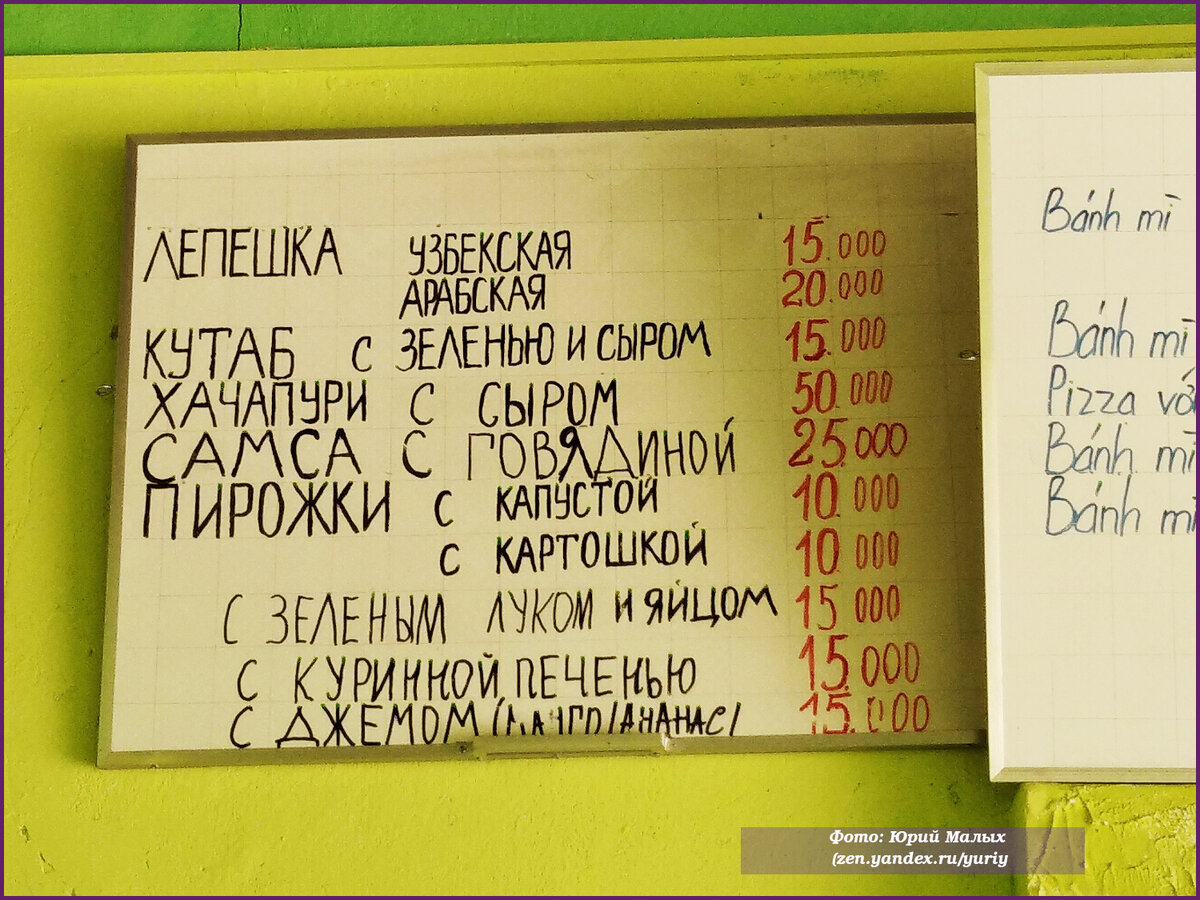 ЛЕПЕШКА УЗБЕКСКАЯ 15.000
АРАБСКАЯ 20.000
КУТАБ С ЗЕЛЕНЬЮ И СЫРОМ 15.000
ХАЧАПУРИ С СЫРОМ 50.000
САМСА С ГОВЯДИНОЙ 25000
ПИРОЖКИ С КАПУСТОЙ 10.000
С КАРТОШКОЙ 10.000
С ЗЕЛЕНЫМ ЛУКОМ И ЯЙЦОМ 15 000
С КУРИННОЙ ПЕЧЕНЬЮ 15.000
С ДЖЕМОМ (МАНГО/АНАНАС/ 15.000
Bánh mì
Bánh mì
Pizza
Bánh mì
Bánh mì
Фото: Юрий Малых
(zen.yandex.ru/yuriy